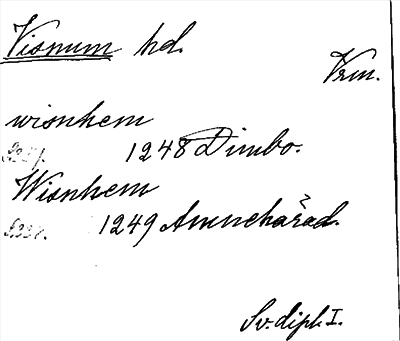 Visnum hd.
Vrm.
wisnhem
1248 Dimbo.
Wisnhem
1249 Amneharad.
Sv. dipl. I.